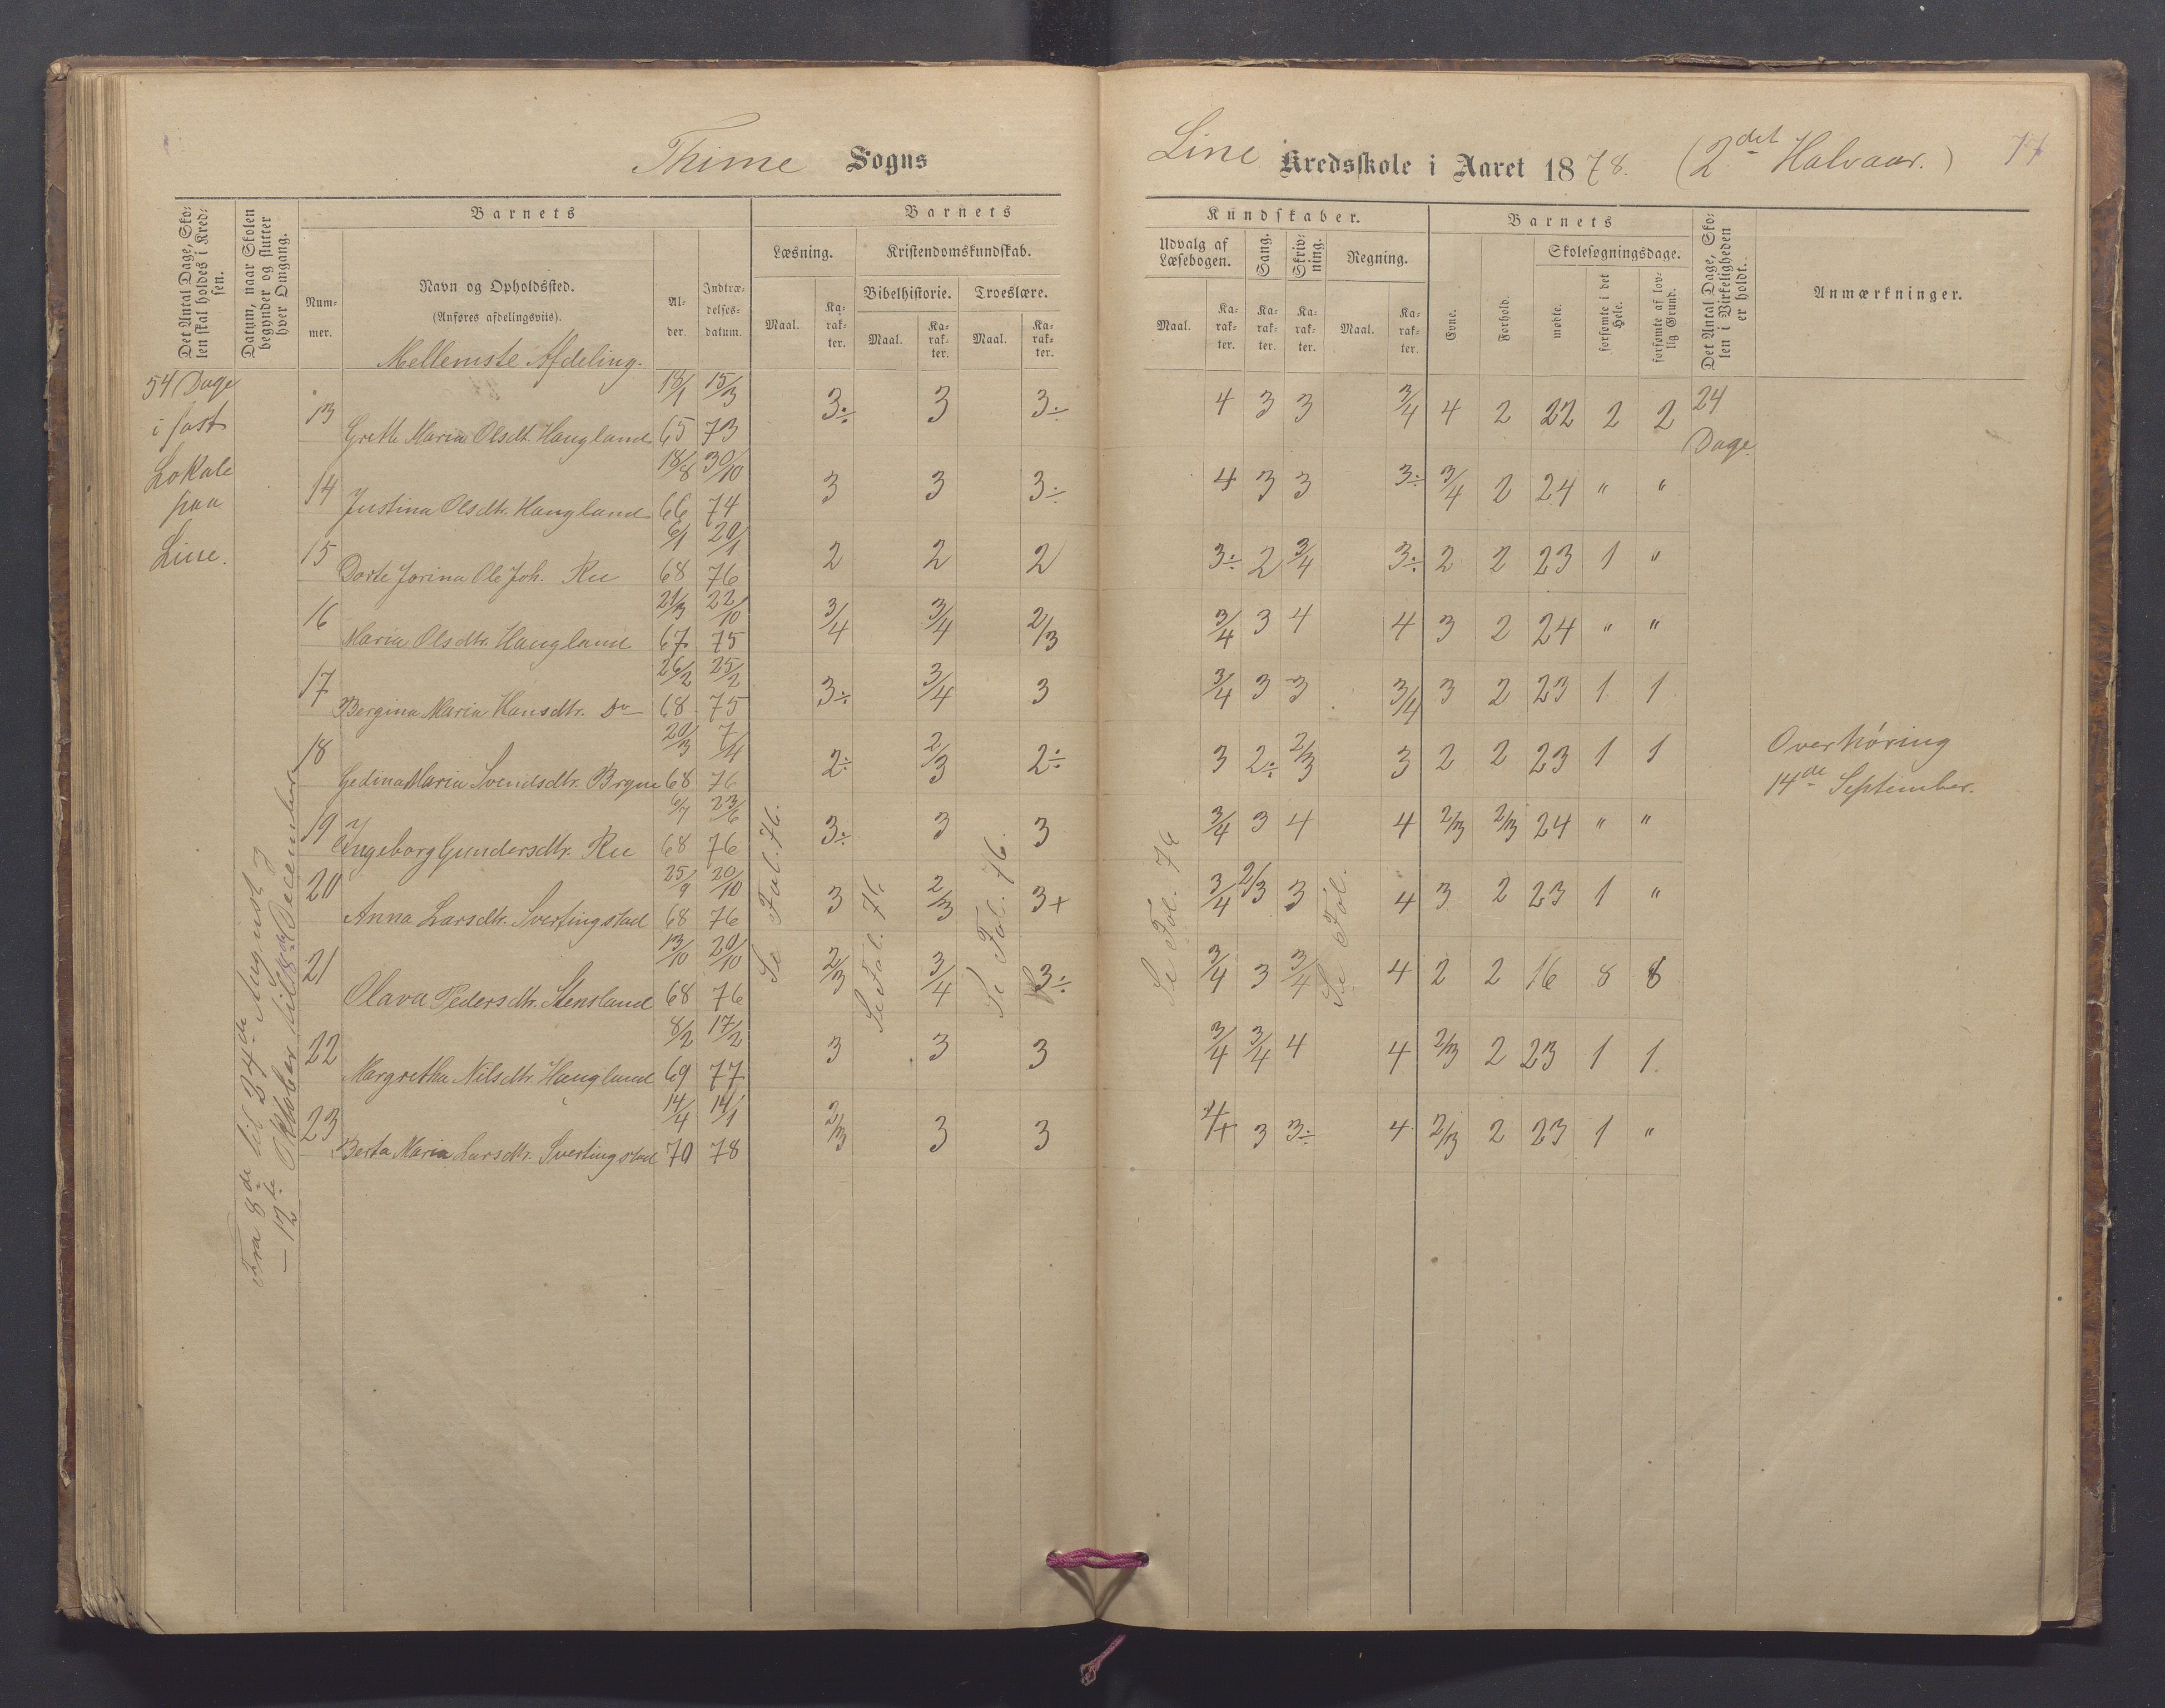 Thime Sogns
Line Kredsskole i Aaret 1878. (2det Halvaar.) 77
Det Antal Dage, Skolen skal holdes i Kredsen.
Datum, naar Skolen begynder og slutter hver Omgang.
Barnets
Nummer.
Navn og Opholdssted.
(Anføres afdelingsviis).
Mellemste Afdeling.
Alder.
Indtrædelsesdatum.
Barnets
Læsning.
Maal.
Karakter.
Kristendomskundskab.
Bibelhistorie.
Maal.
Karakter.
Troeslære.
Maal.
Karakter.
Kundskaber.
Udvalg af Læsebogen.
Maal.
Karakter.
Sang.
Karakter.
Skrivning.
Karakter.
Regning.
Maal.
Karakter.
Barnets
Evne.
Forhold.
Skolesøgningsdage.
mødte.
forsømte i det Hele.
forsømte af lovlig Grund.
Det Antal Dage, Skolen i Virkeligheden er holdt.
Anmærkninger.
54 Dage
i fast
Lokale
paa
Line.
Fra 8de til 24de August og
— 12te Oktober til 18de December
13 Grethe Maria Olsdt. Haugland 18/1 65 15/3 73 3÷ 3 3÷ 4 3 3 3/4 4 2 22 2 2 24 Dage
14 Justina Olsdtr. Haugland 18/8 66 30/10 74 3 3 3÷ 4 3 3 3÷ 3/4 2 24 " "
15 Dorte Jorina Ole Joh. Rue 6/1 68 20/1 76 2 2 2 3÷ 2 3/4 3÷ 2 2 23 1 "
16 Maria Olsdtr. Haugland 21/3 67 22/10 75 3/4 3/4 2/3 3/4 3 4 4 3 2 24 " "
17 Bergina Maria Hansdtr. Do 26/2 68 25/2 75 3÷ 3/4 3 3/4 3 3 3/4 3 2 23 1 1
18 Gedina Maria Svendsdtr. Bryne 20/3 68 7/4 76 2÷ 2/3 2÷ 3 2÷ 2/3 3 2 2 23 1 1
Overhøring
14de September.
19 Ingeborg Gundersdtr. Rue 6/7 68 23/6 76 3÷ 3 3 3/4 3 4 4 2/3 2/3 24 " "
20 Anna Larsdtr. Svertingstad 25/9 68 20/10 76 3 2/3 3+ 3/4 2/3 3 4 3 2 23 1 "
21 Olava Pedersdtr. Stensland 13/10 68 20/10 76 2/3 3/4 3÷ 3/4 3 3/4 4 2 2 16 8 8
22 Margretha Nilsdtr. Haugland 8/2 69 17/2 77 3 3 3 3/4 3/4 4 4 2/3 2 23 1 1
23 Berta Maria Larsdtr. Svertingstad 14/4 70 14/1 78 2/3 3 3 4+ 3 3÷ 4 2/3 2 23 1 "
Se Fol. 76.
Se Fol. 76
Se Fol. 76.
Se Fol. 76
Se Fol.